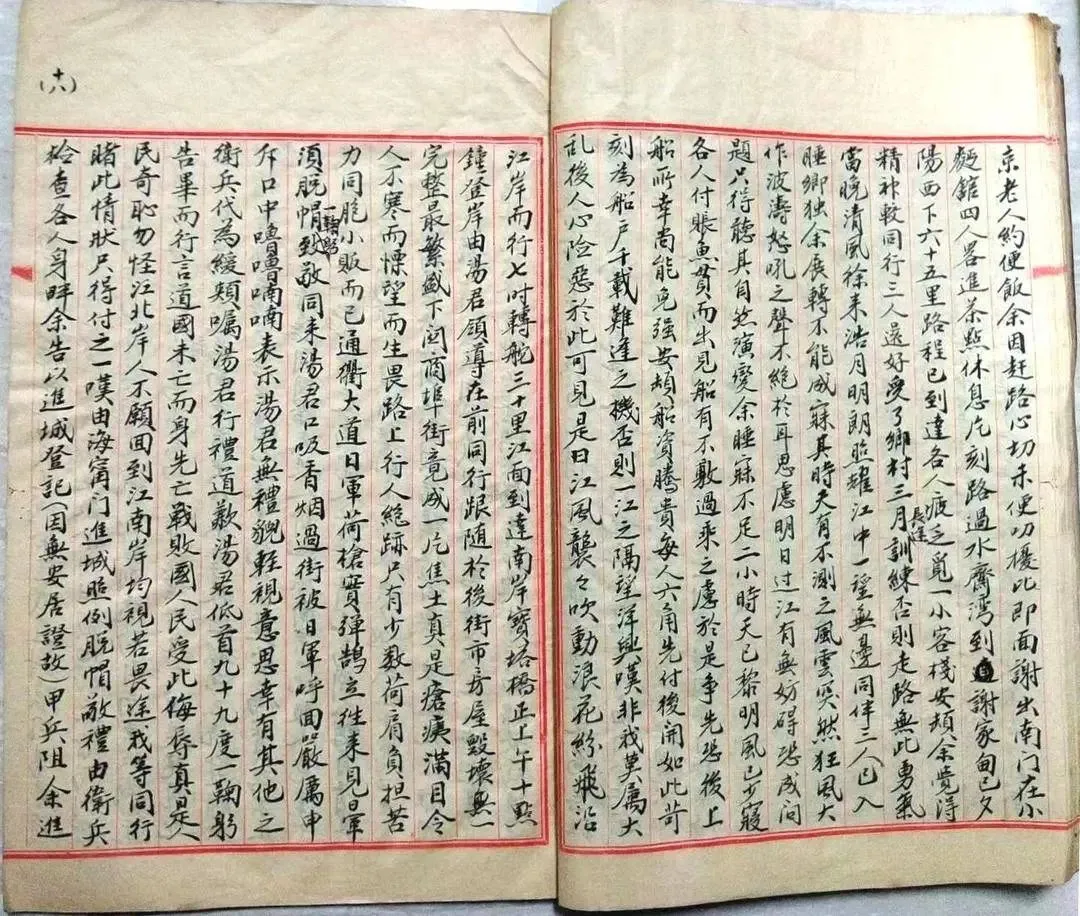 京老人約便飯余因赶路心切未便叨擾比即面謝出南门在小
麵館四人畧進茶點休息片刻路過水齊湾到謝家甸已夕
陽西下六十五里路程已到達各人疲乏覓一小客棧安頓余覺得
精神較同行三人還好受了鄉村三月長途訓練否則走路無此勇氣
當晚清風徐来浩月明朗照耀江中一望無邊同伴三人已入
睡鄉独余展轉不能成寐其時天有不測之風雲突然狂風大
作波濤怒吼之聲不絶於耳思慮明日过江有無妨碍恐成问
題只得聽其自然演變余睡寐不足二小時天已黎明風已少寢
各人付賬魚贯而出見船有不敷過乘之虞於是争先恐後上
船所幸尚能免强安頓船資騰贵每人六角先付後開如此苛
刻為船户千載難逢之機否則一江之隔望洋興嘆非我莫属大
乱後人心险惡於此可見是日江風襲々吹動浪花紛飛沿
(十六)
江岸而行七时轉舵三十里江面到達南岸寶塔橋正上午十點
鐘登岸由湯君領導在前同行跟随於後街市房屋毀壞無一
完整最繁盛下関商埠街竟成一片焦土真是瘡痍滿目令
人不寒而慄望而生畏路上行人絶跡只有少数荷肩負担苦
力同胞小贩而已通衢大道日軍荷槍實弹鹄立往来見日軍
須脱帽致敬同来湯君口吸香烟過街被日軍呼回嚴厲申
斥口中嚕嚕喃喃表示湯君無禮貌輕視意思幸有其他之
衛兵代為緩頰嘱湯君行禮道歉湯君低首九十九度一鞠躬
告畢而行言道國未亡而身先亡戰敗國人民受此侮辱真是人
民奇恥勿怪江北岸人不願回到江南岸均視若畏途我等同行
睹此情狀只得付之一嘆由海甯门進城照例脱帽敬禮由衛兵
检查各人身畔余告以進城登記(因無安居證故)甲兵阻余進